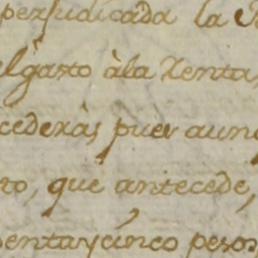 perjudicada la
elgasto àla Renta,
cederàs pues aun
to, que antecede,
sentaycinco pesos